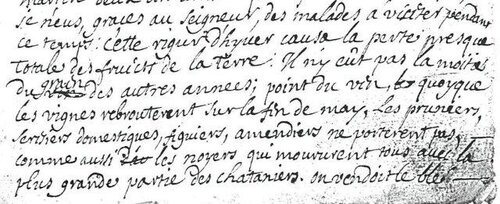 se neus, graces au seigneur, des malades a visiter pendant
ce temps. Cette rigur d'hyver causa la perte presque
totale des fruicts de la terre: Il n'y eut pas la moitié
du grain des autres annees; point du vin, quoyque
les vignes rebrouterent sur la fin de may, Les pruniers,
serisiers domestiques, figuiers, amendiers ne porterent pas,
comme aussi les noyers qui moururent tous avec la
plus grande partie des chataniers. on vendoit le bled